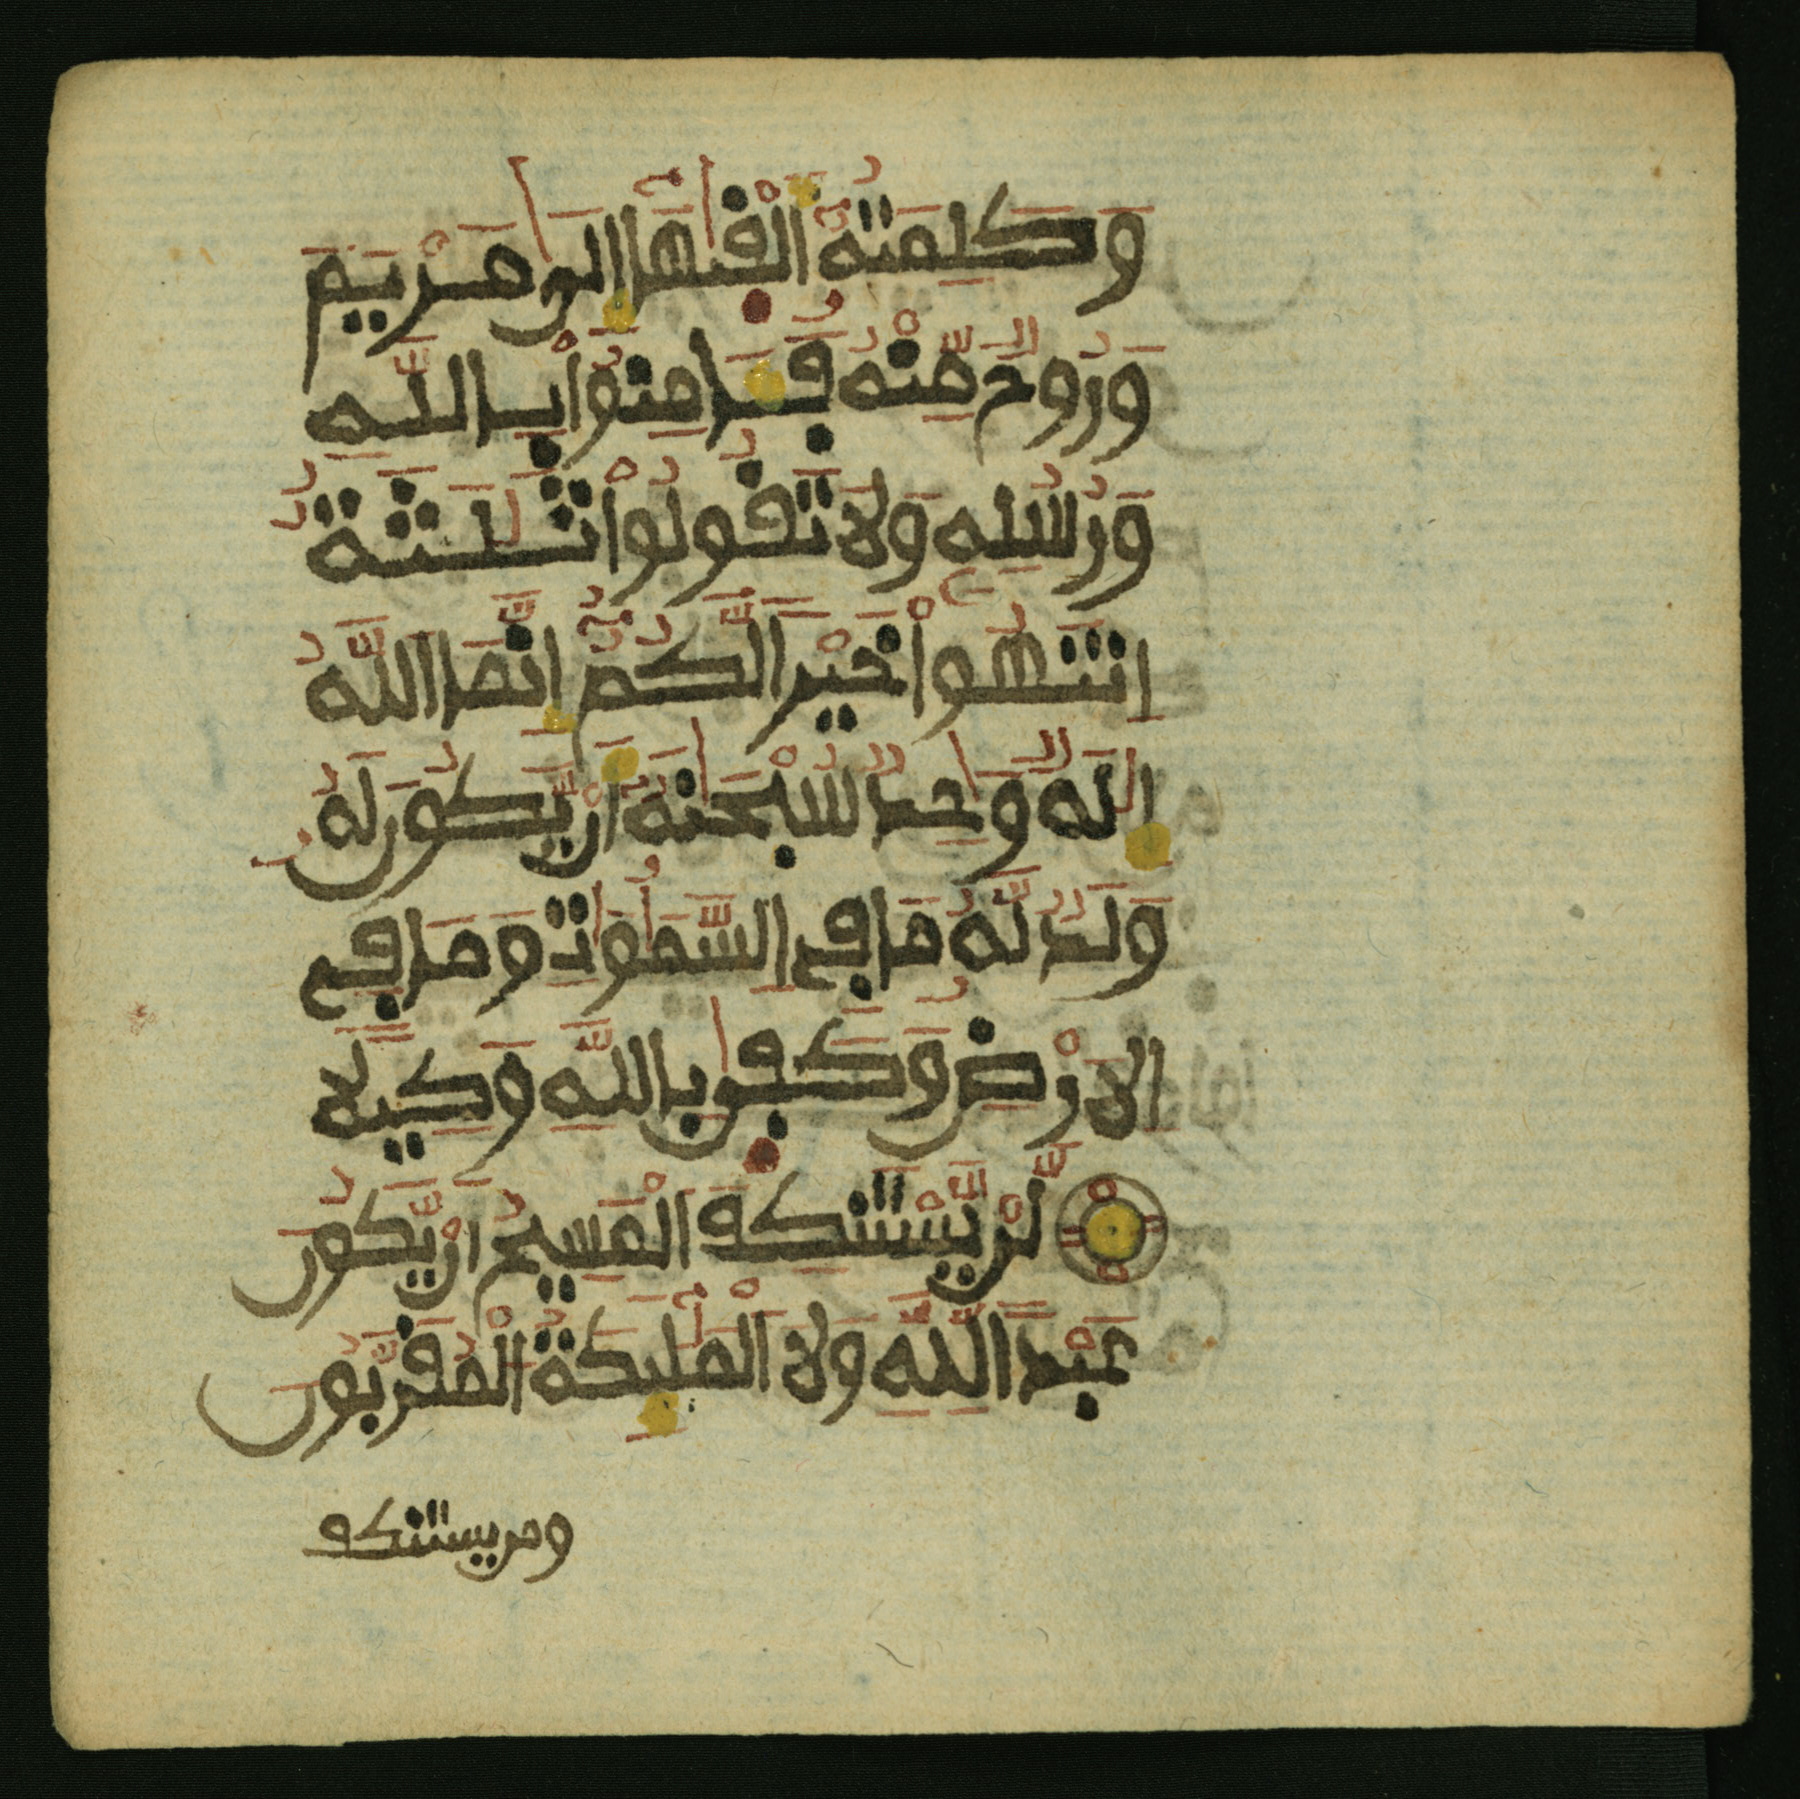 وَكَلِمَتُهُ أَلْقَىٰهَا إِلَىٰ مَرْيَمَ
وَرُوحٌ مِّنْهُ فَـَٔامِنُوا۟ بِاللَّهِ
وَرُسُلِهِ وَلَا تَقُولُوا۟ ثَلَٰثَةٌ
انتَهُوا۟ خَيْرًا لَّكُمُۥٓ إِنَّمَا اللَّهُ
إِلَٰهٌ وَٰحِدٌ سُبْحَٰنَهُۥٓ أَنْ يَّكُونَ لَهُ
وَلَدٌ لَّهُ مَا فِى السَّمَٰوَٰتِ وَمَا فِى
الَارْضِ وَكَفَىٰ بِاللَّهِ وَكِيلًا
لَّنْ يَّسْتَنكِفَ الْمَسِيحُ أَنْ يَّكُونَ
عَبْدًا لِّلَّهِ وَلَا الْمَلَٰٓئِكَةُ الْمُقَرَّبُونَ
ومن يستنكف